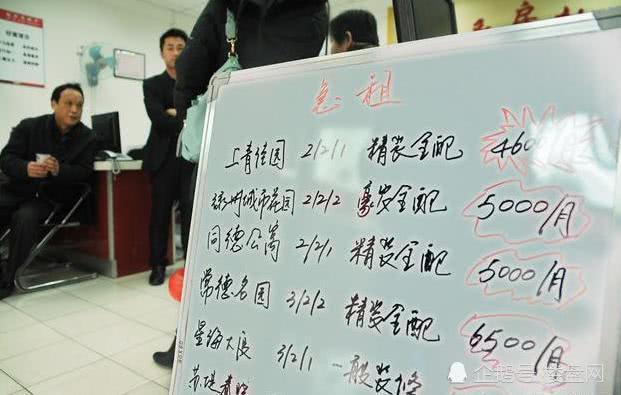 急租
上青佳园 2/2/1 精装全配 460
城市花园 2/2/2 豪装全配 5000/月
同德公寓 2/2/1 精装全配 5000/月
常德名园 3/2/2 精装全配 6500/月
星海大厦 3/2/1 一般装修
苏堤
企鹅号 楼盘网